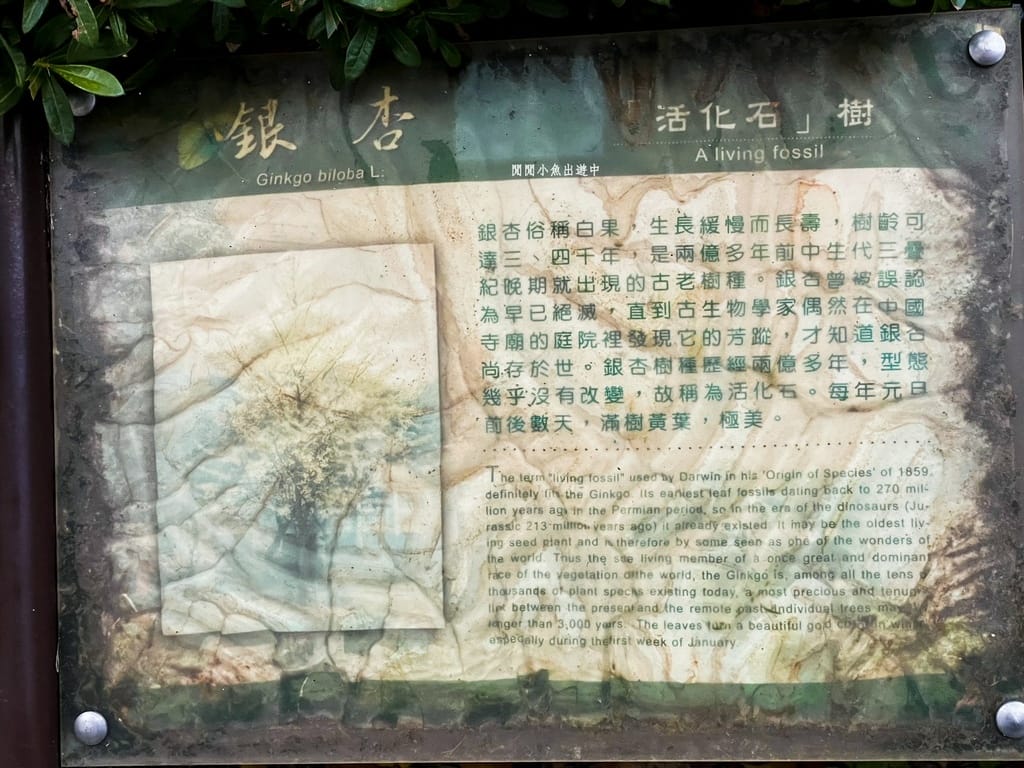 銀杏
Ginkgo biloba L.
「活化石」樹
A living fossil
閒閒小魚出遊中
銀杏俗稱白果，生長緩慢而長壽，樹齡可
達三、四千年，是兩億多年前中生代三疊
紀晚期就出現的古老樹種。銀杏曾被誤認
為早已絕滅，直到古生物學家偶然在中國
寺廟的庭院裡發現它的芳蹤，才知道銀杏
尚存於世。銀杏樹種歷經兩億多年，型態
幾乎沒有改變，故稱為活化石。每年元旦
前後數天，滿樹黃葉，極美。
The term "living fossil" used by Darwin in his 'Origin of Species' of 1859,
definitely fits the Ginkgo. Its earliest leaf fossils dating back to 270 mil-
lion years ago in the Permian period, so in the era of the dinosaurs (Ju-
rassic 213 million years ago) it already existed. It may be the oldest liv-
ing seed plant and is therefore by some seen as one of the wonders of
the world. Thus the sole living member of a once great and dominant
race of the vegetation of the world, the Ginkgo is, among all the tens of
thousands of plant species existing today, a most precious and tenuous
link between the present and the remote past. Individual trees may
longer than 3,000 years. The leaves turn a beautiful gold color in winter
especially during the first week of January